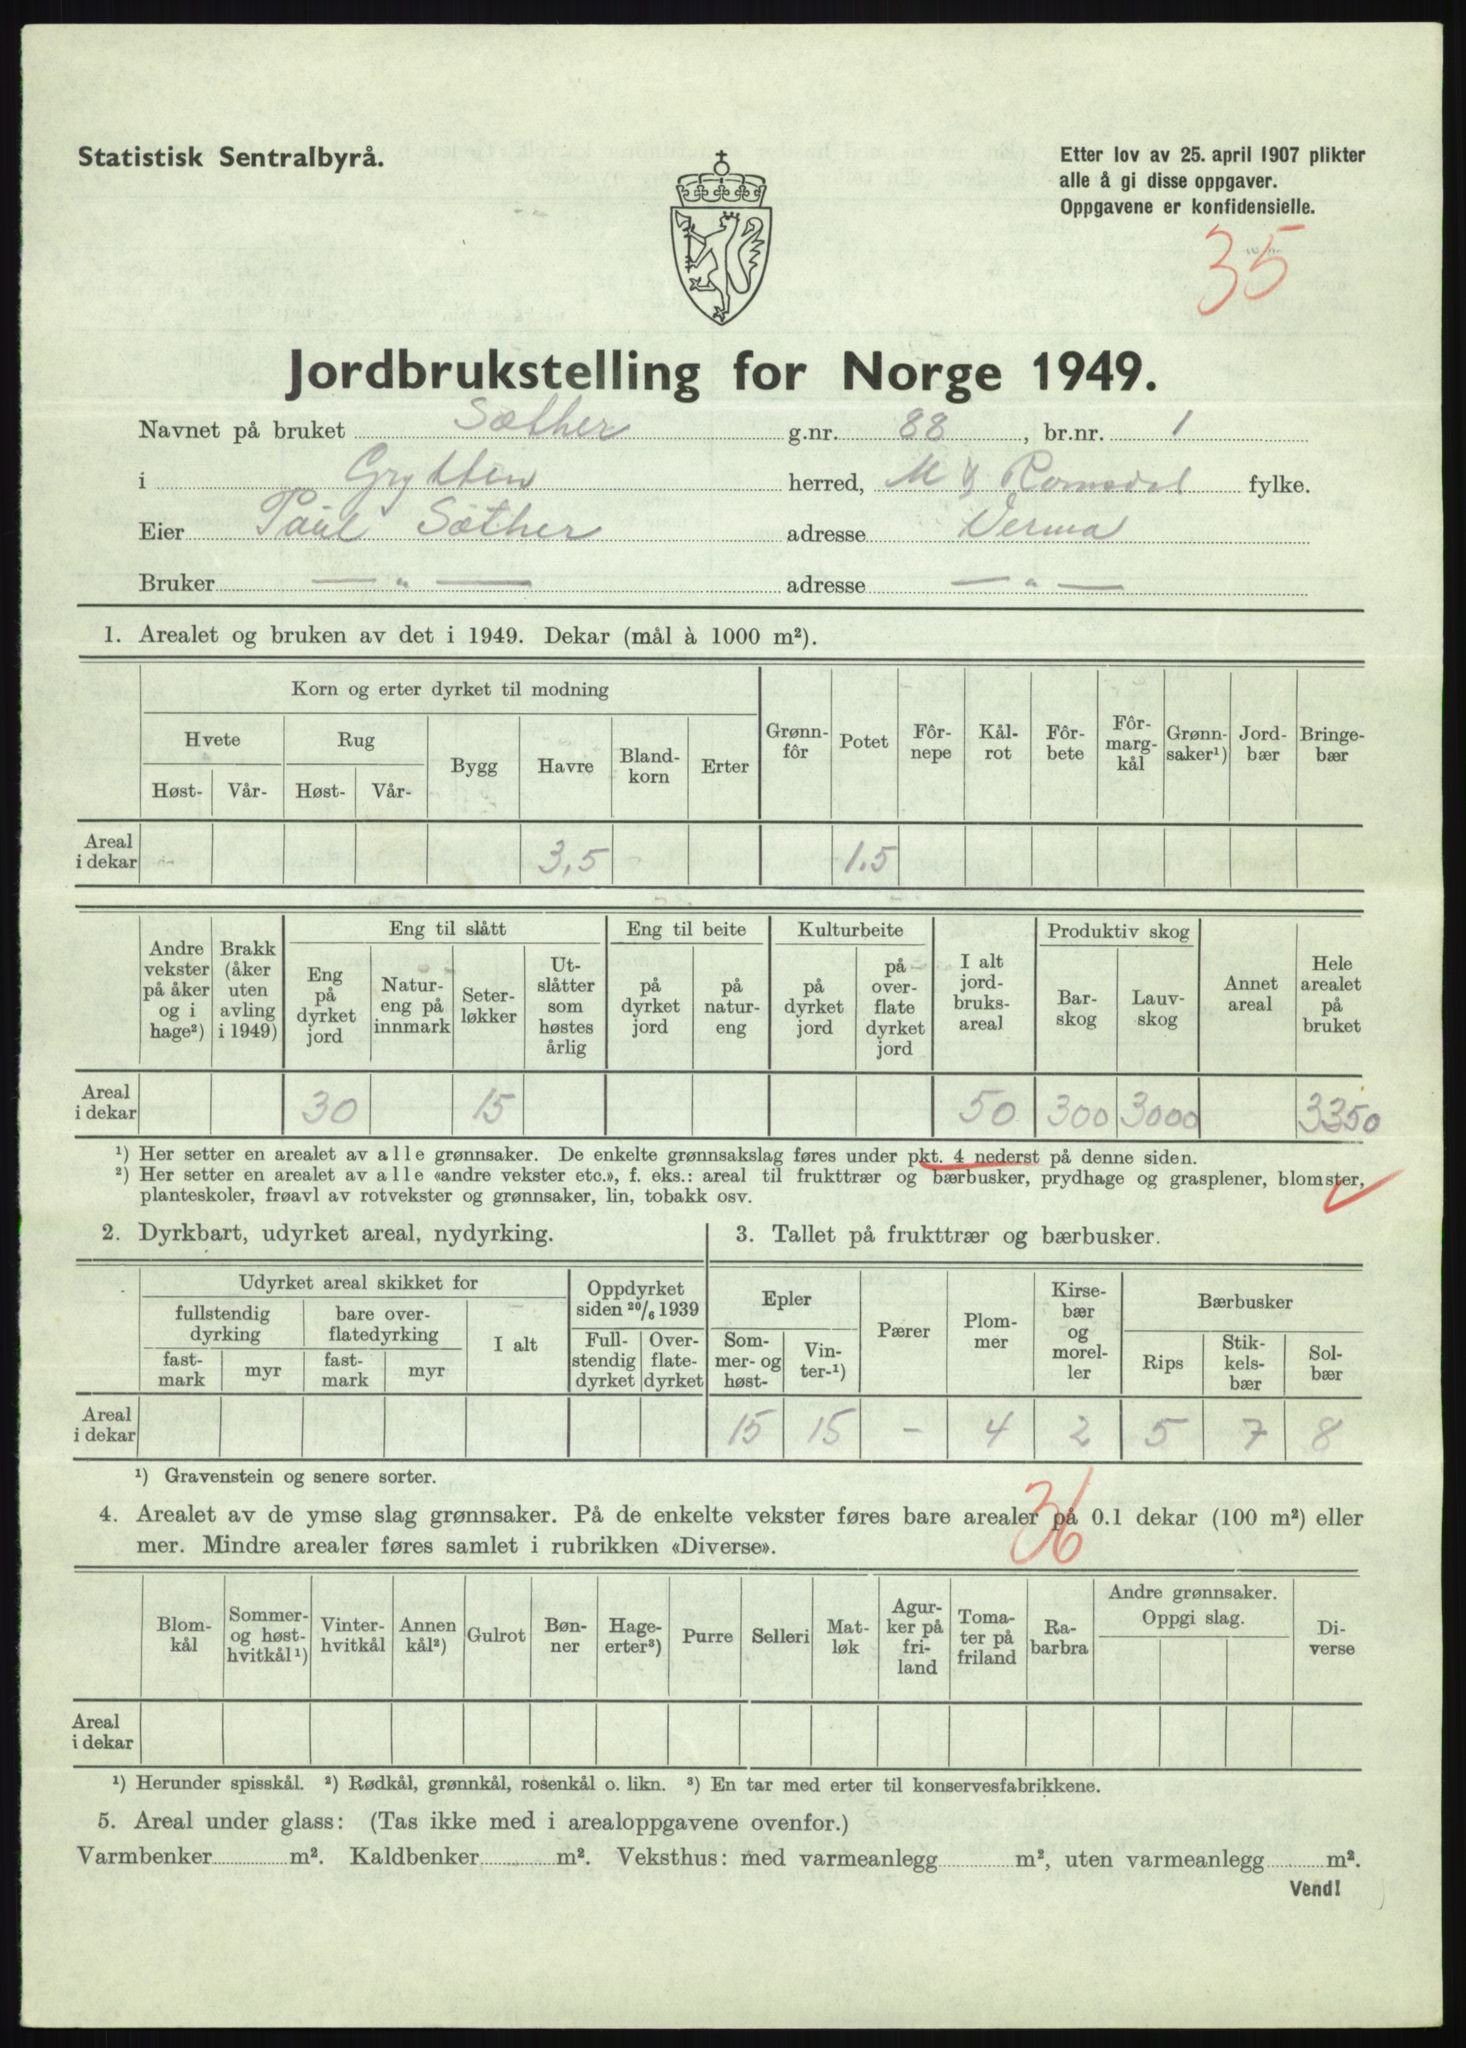 Statistisk Sentralbyrå.
Etter lov av 25. april 1907 plikter
alle å gi disse oppgaver.
Oppgavene er konfidensielle.
35
Jordbrukstelling for Norge 1949.
Navnet på bruket Sæther g.nr. 88, br.nr. 1
i Grytten herred, M & Romsdal fylke.
Eier Paul Sæther adresse Verma
Bruker — „ — adresse — „ —
1. Arealet og bruken av det i 1949. Dekar (mål à 1000 m²).
Korn og erter dyrket til modning
Hvete Rug Bygg Havre Bland-korn Erter Grønn-fôr Potet Fôr-nepe Kål-rot Fôr-bete Fôr-marg-kål Grønn-saker¹) Jord-bær Bringe-bær
Høst- Vår- Høst- Vår-
Areal i dekar 3,5 1.5
Andre vekster på åker og i hage²) Brakk (åker uten avling i 1949) Eng til slått Eng til beite Kulturbeite I alt jord-bruks-areal Produktiv skog Annet areal Hele arealet på bruket
Eng på dyrket jord Natur-eng på innmark Seter-løkker Ut-slåtter som høstes årlig på dyrket jord på natur-eng på dyrket jord på over-flate dyrket jord Bar-skog Lauv-skog
Areal i dekar 30 15 50 300 3000 3350
¹) Her setter en arealet av alle grønnsaker. De enkelte grønnsakslag føres under pkt. 4 nederst på denne siden.
²) Her setter en arealet av alle «andre vekster etc.», f. eks.: areal til frukttrær og bærbusker, prydhage og grasplener, blomster,
planteskoler, frøavl av rotvekster og grønnsaker, lin, tobakk osv.
2. Dyrkbart, udyrket areal, nydyrking.
Udyrket areal skikket for Oppdyrket siden ²⁰/₆ 1939
fullstendig dyrking bare over-flatedyrking I alt Full-stendig dyrket Over-flate-dyrket
fast-mark myr fast-mark myr
3. Tallet på frukttrær og bærbusker.
Epler Pærer Plom-mer Kirse-bær og morel-ler Bærbusker
Som-mer- og høst- Vin-ter-¹) Rips Stik-kels-bær Sol-bær
Areal i dekar 15 15 - 4 2 5 7 8
¹) Gravenstein og senere sorter.
36
4. Arealet av de ymse slag grønnsaker. På de enkelte vekster føres bare arealer på 0.1 dekar (100 m²) eller
mer. Mindre arealer føres samlet i rubrikken «Diverse».
Blom-kål Sommer- og høst-hvitkål¹) Vinter-hvitkål Annen kål²) Gulrot Bøn-ner Hage-erter³) Purre Selleri Mat-løk Agur-ker på fri-land Toma-ter på friland Ra-barbra Andre grønnsaker. Oppgi slag. Di-verse
Areal i dekar
¹) Herunder spisskål. ²) Rødkål, grønnkål, rosenkål o. likn. ³) En tar med erter til konservesfabrikkene.
5. Areal under glass: (Tas ikke med i arealoppgavene ovenfor.)
Varmbenker m². Kaldbenker m². Veksthus: med varmeanlegg m², uten varmeanlegg m².
Vend!